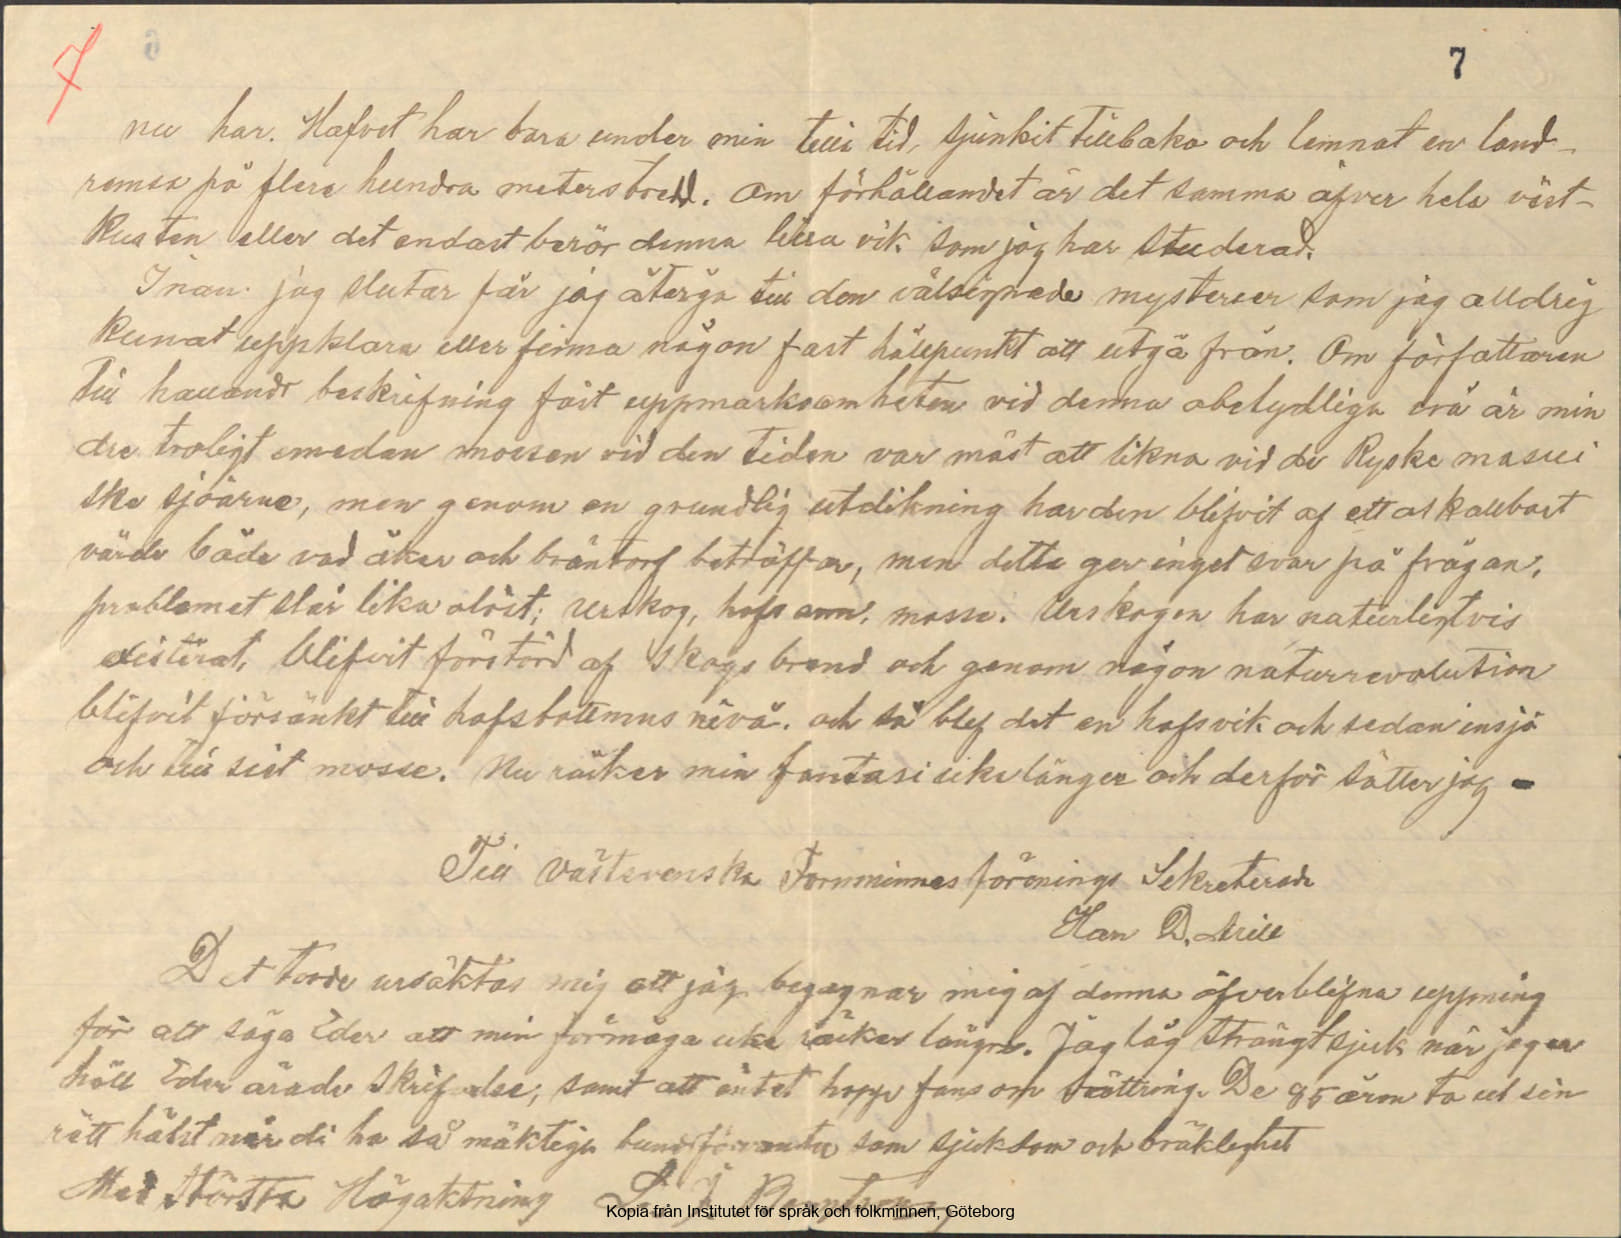 7
7
nu har. Hafvet har bara under min lilla tid, sjunkit tillbaka och lemnat en land-
remsa på flera hundra metersbredd. Om förhållandet är det samma öfver hela väst-
kusten eller det endast berör denna lilla vik som jag har studerad.
Inan jag slutar får jag återgå till den välsignade mysterier som jag alldrig
kunnat uppklara eller finna någon fast hållpunkt att utgå från. Om författaren
till hallands beskrifning fäst uppmarksamheten vid denna obetydliga vrå är min
dre troligt emedan mossen vid den tiden var mäst att likna vid de Ryske masui
ske sjöarne, men genom en grundlig utdikning har den blifvit af ett oskattbart
värde både vad åker och bräntorf beträffar, men detta ger inget svar på frågan,
problemet står lika olöst; Urskog, hafs mosse. Urskogen har naturligtvis
existerat, blifvit förstörd af skogsbrand och genom någon naturrevolution
blifvit försänkt till hafsbottenns nivå. och så blef det en hafsvik och sedan insjö
och till sist mosse. Nu räcker min fantasi icke länger och derför sätter jag -
Till Västsvenska Fornminnes förenings Sekreterade
Han D.
Det torde ursäktas mig att jag begagnar mig af denna öfverblifna uppning
för att säga Eder att min förmåga icke räcker längre. Jag låg strängt sjuk när jag er
höll Eder ärade skrifvelse, samt att intet hopp fans om bättring. De 85 åren ta ut sin
rätt hälst när di ha så mäktiga bundsförvanter som sjukdom och bräklighet
Med Största Högaktning L. J. Bengtsson
Kopia från Institutet för språk och folkminnen, Göteborg